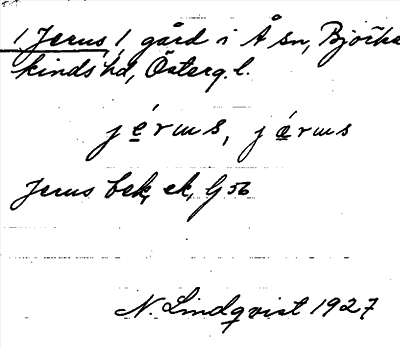 1 Jerus, 1 gård i Å sn, Björke
kinds hd, Österg. l.
järus, järus
Jerus bek, ek, G 56
N. Lindqvist 1927